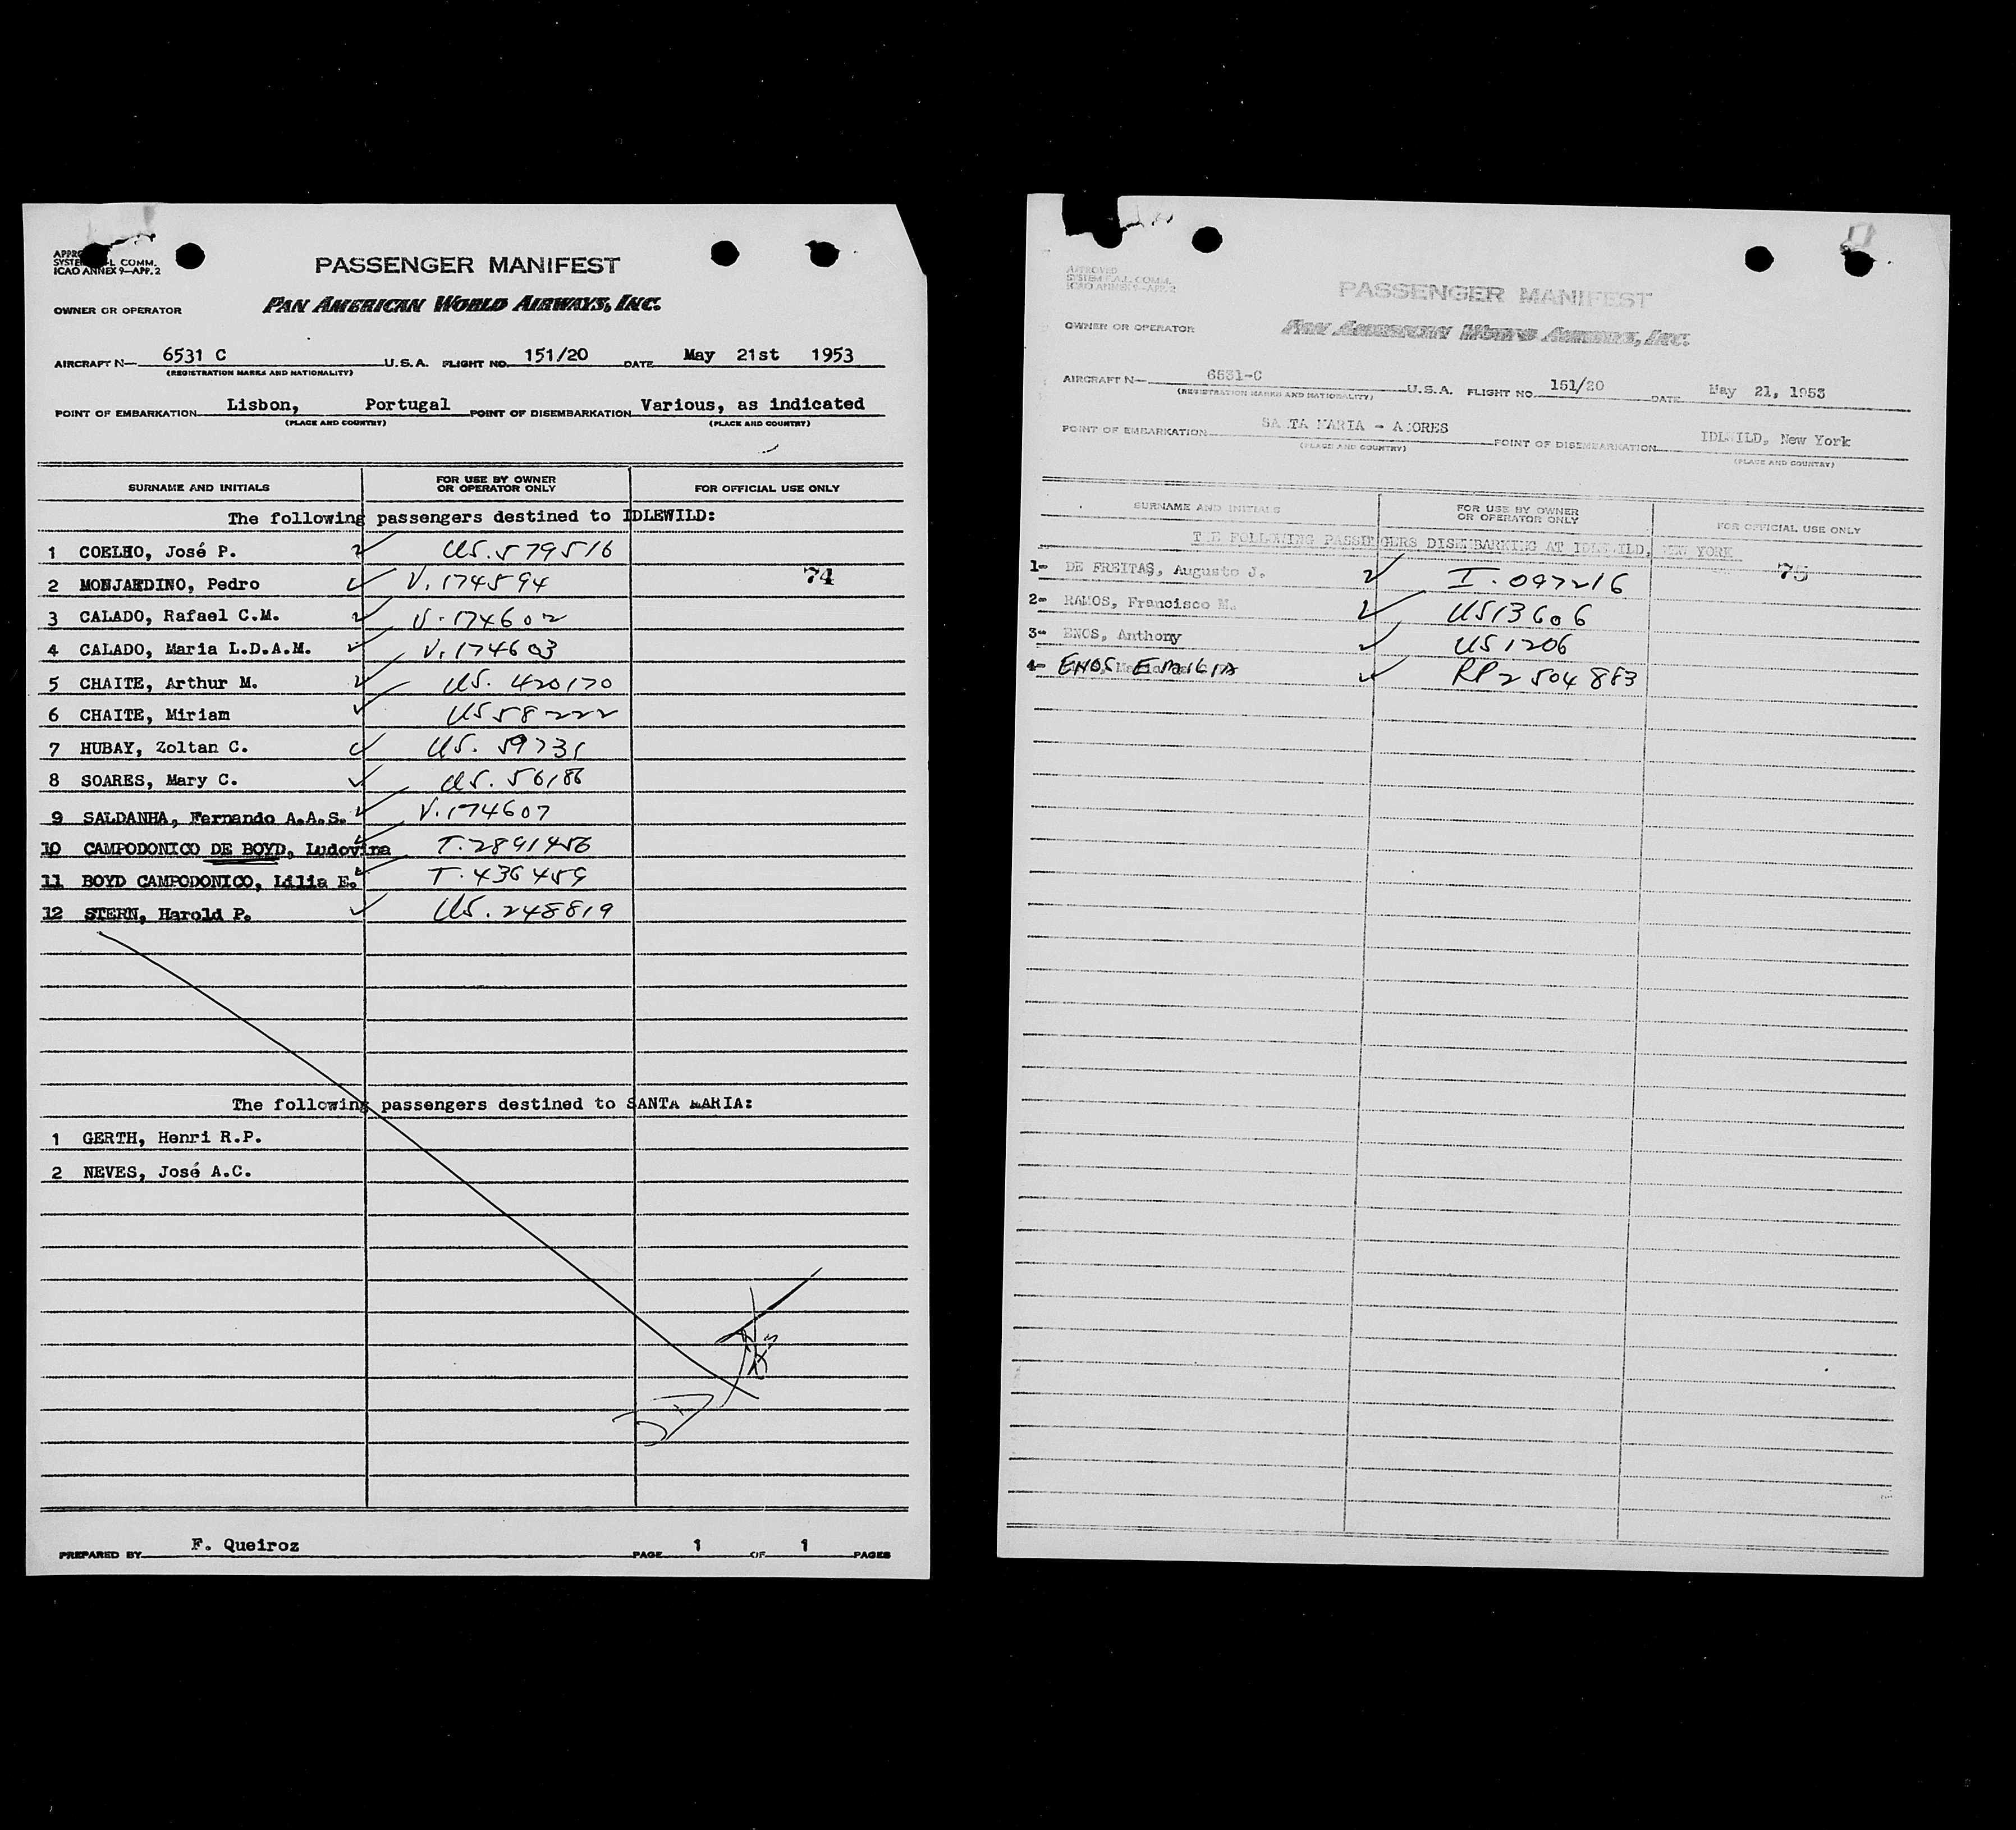 APPRO
SYSTE L COMM.
ICAO ANNEX 9—APP. 2
PASSENGER MANIFEST
OWNER OR OPERATOR
PAN AMERICAN WORLD AIRWAYS, INC.
AIRCRAFT N— 6531 C U.S.A. FLIGHT NO. 151/20 DATE May 21st 1953
(REGISTRATION MARKS AND NATIONALITY)
POINT OF EMBARKATION Lisbon, Portugal POINT OF DISEMBARKATION Various, as indicated
(PLACE AND COUNTRY) (PLACE AND COUNTRY)
SURNAME AND INITIALS FOR USE BY OWNER OR OPERATOR ONLY FOR OFFICIAL USE ONLY
The following passengers destined to IDLEWILD:
1 COELHO, José P. US. 579516
2 MONJARDINO, Pedro V. 174594 74
3 CALADO, Rafael C.M. V. 174602
4 CALADO, Maria L.D.A.M. V. 174603
5 CHAITE, Arthur M. US. 420170
6 CHAITE, Miriam US 58222
7 HUBAY, Zoltan C. US. 59731
8 SOARES, Mary C. US. 56186
9 SALDANHA, Fernando A.A.S. V. 174607
10 CAMPODONICO DE BOYD, Ludovina T. 2891456
11 BOYD CAMPODONICO, Lilia E. T. 436459
12 STERN, Harold P. US. 248819
The following passengers destined to SANTA MARIA:
1 GERTH, Henri R.P.
2 NEVES, José A.C.
PREPARED BY F. Queiroz PAGE 1 OF 1 PAGES
APPROVED
SYSTEM F.A.L. COMM.
ICAO ANNEX 9—APP. 2
PASSENGER MANIFEST
OWNER OR OPERATOR
PAN AMERICAN WORLD AIRWAYS, INC.
AIRCRAFT N— 6531-C U.S.A. FLIGHT NO. 151/20 DATE May 21, 1953
(REGISTRATION MARKS AND NATIONALITY)
POINT OF EMBARKATION SANTA MARIA - AZORES POINT OF DISEMBARKATION IDLEWILD, New York
(PLACE AND COUNTRY) (PLACE AND COUNTRY)
SURNAME AND INITIALS FOR USE BY OWNER OR OPERATOR ONLY FOR OFFICIAL USE ONLY
THE FOLLOWING PASSENGERS DISEMBARKING AT IDLEWILD, NEW YORK
1- DE FREITAS, Augusto J. I. 097216 75
2- RAMOS, Francisco M. US13606
3- ENOS, Anthony US 1206
4- ENOS EMIGIA RP2504883